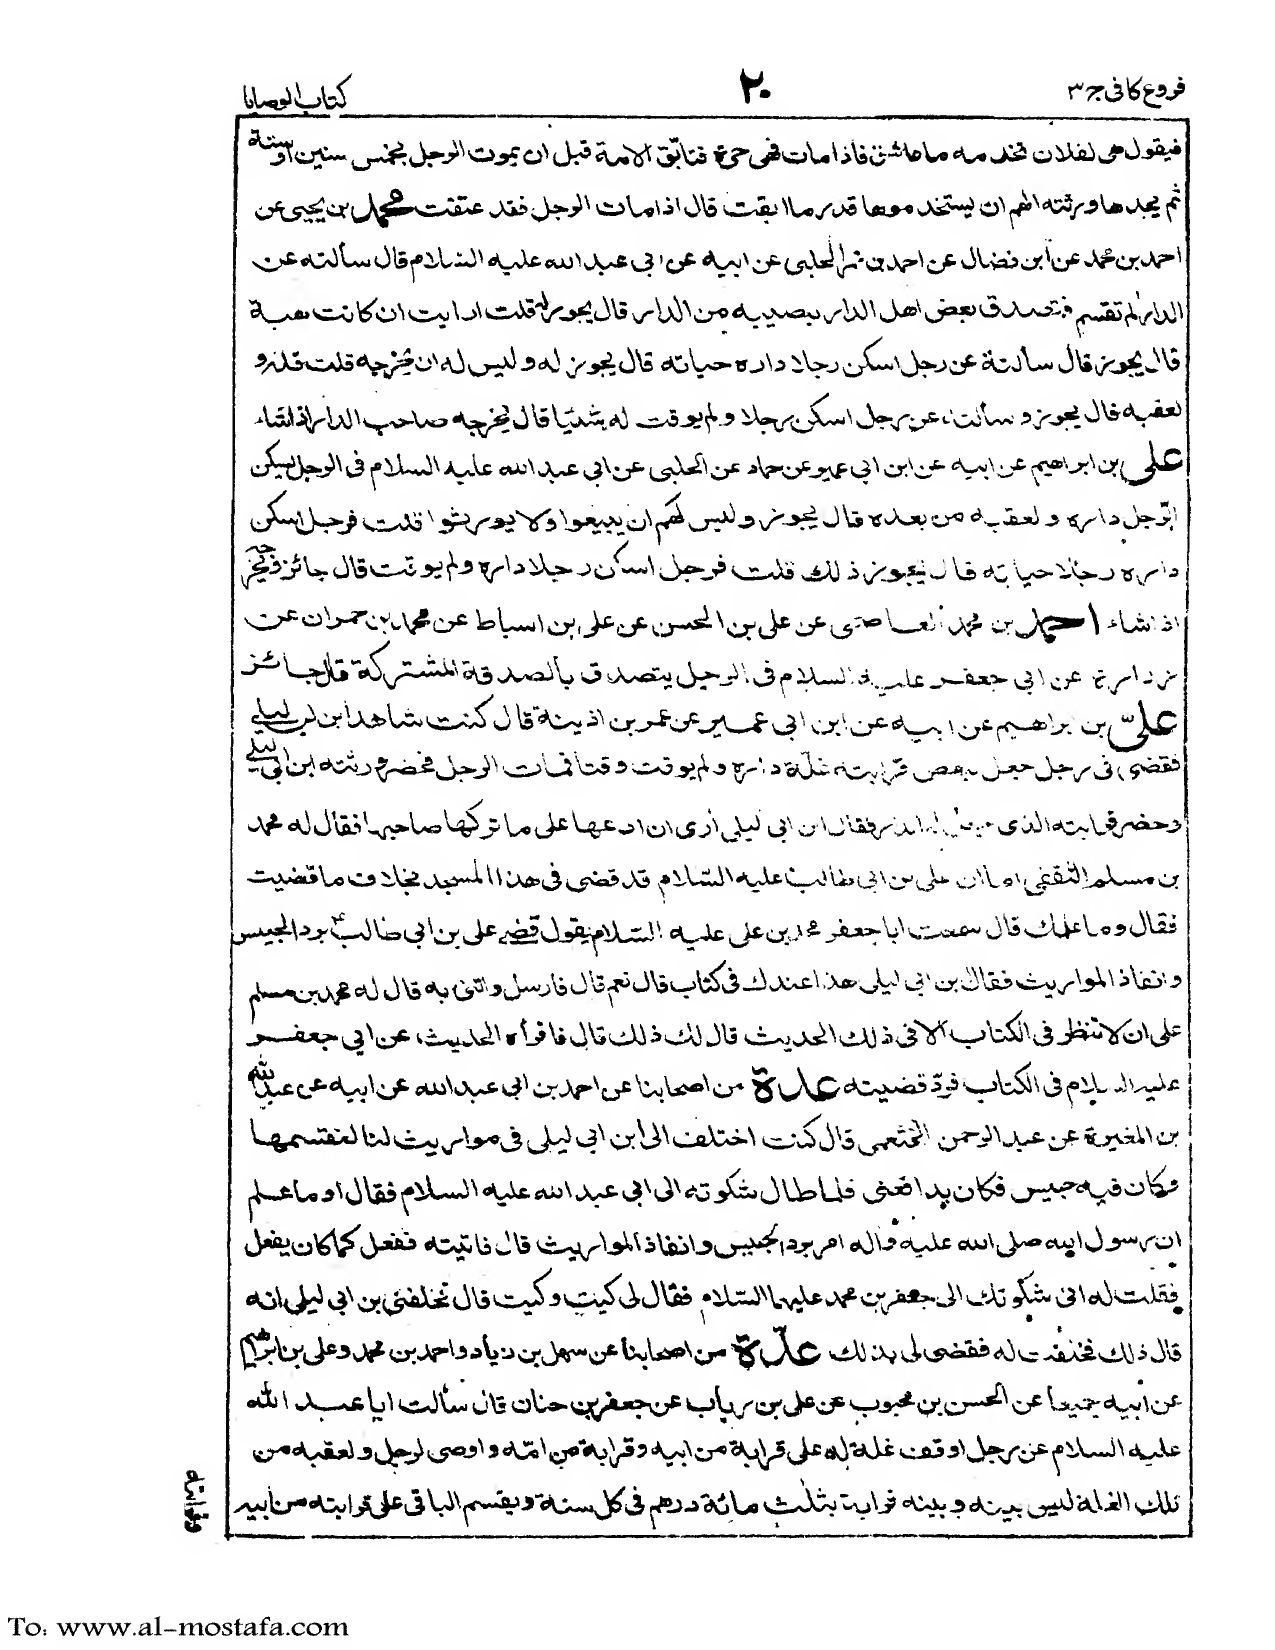 فروع كافى ج ٣
٢٠
كتاب الوصايا
فيقول هى لفلان تخدمه ما عاش فاذا مات فهى حرة فتابق الامة قبل ان يموت الرجل بخمس سنين اوستة
ثم يجدها ورثته الهم ان يستخدموها قدر ما ابقت قال اذا مات الرجل فقد عتقت محمد بن يحيى عن
احمد بن محمد عن ابن فضال عن احمد بن عمر الحلبى عن ابيه عن ابى عبد الله عليه السلام قال سألته عن
الدار لم تقسم فتصدق بعض اهل الدار بنصيبه من الدار قال يجوز له قلت ارايت ان كانت هبة
قال يجوز قال سألته عن رجل اسكن رجلا داره حياته قال يجوز له وليس له ان يخرجه قلت فله و
لعقبه قال يجوز وسألته عن رجل اسكن رجلا ولم يوقت له شيئا قال يخرجه صاحب الدار اذا شاء
على بن ابراهيم عن ابيه عن ابن ابى عمير عن حماد عن الحلبى عن ابى عبد الله عليه السلام فى الرجل يسكن
الرجل داره ولعقبه من بعده قال يجوز وليس لهم ان يبيعوا ولا يورثوا قلت فرجل اسكن
داره رجلا حياته قال يجوز ذلك قلت فرجل اسكن رجلا داره ولم يوقت قال جائز ويخرجه
اذا شاء احمد بن محمد العاصمى عن على بن الحسن عن على بن اسباط عن محمد بن حمران عن
زرارة عن ابى جعفر عليه السلام فى الرجل يتصدق بالصدقة المشتركة قال جائز
على بن ابراهيم عن ابيه عن ابن ابى عمير عن عمر بن اذينة قال كنت شاهدا ابن ابى ليلى
فقضى فى رجل جعل لبعض قرابته غلة داره ولم يوقت وقتا فمات الرجل فحضر ورثته ابن ابى ليلى
وحضر قرابته الذى جعل له الدار فقال ابن ابى ليلى ارى ان ادعها على ما تركها صاحبها فقال له محمد
بن مسلم الثقفى اما ان على بن ابى طالب عليه السلام قد قضى فى هذا المسجد بخلاف ما قضيت
فقال وما علمك قال سمعت ابا جعفر محمد بن على عليه السلام يقول قضى على بن ابى طالب ع برد الحبيس
وانفاذ المواريث فقال بن ابى ليلى هذا عندك فى كتاب قال نعم قال فارسل وائتنى به قال له محمد بن مسلم
على ان لا تنظر فى الكتاب الا فى ذلك الحديث قال لك ذلك قال فاقرأه الحديث عن ابى جعفر
عليه السلام فى الكتاب فرد قضيته عدة من اصحابنا عن احمد بن ابى عبد الله عن ابيه عن عبد الله
بن المغيرة عن عبد الرحمن الخثعمى قال كنت اختلف الى ابن ابى ليلى فى مواريث لنا لنقتسمها
وكان فيه حبيس فكان يدافعنى فلما طال شكوته الى ابى عبد الله عليه السلام فقال او ما علم
ان رسول الله صلى الله عليه واله امر برد الحبيس وانفاذ المواريث قال فاتيته ففعل كما كان يفعل
فقلت له انى شكوتك الى جعفر بن محمد عليهما السلام فقال لى كيت وكيت قال فحلفنى بن ابى ليلى انه
قال ذلك فحلفت له فقضى لى بذلك عدة من اصحابنا عن سهل بن زياد واحمد بن محمد وعلى بن ابراهيم
عن ابيه جميعا عن الحسن بن محبوب عن على بن رياب عن جعفر بن حنان قال سألت ابا عبد الله
عليه السلام عن رجل اوقف غلة له على قرابة من ابيه وقرابة من امه واوصى لرجل ولعقبه من
تلك الغلة ليس بينه وبينه قرابة بثلث مائة درهم فى كل سنة ويقسم الباقى على قرابته من ابيه
وقرابته
To: www.al-mostafa.com